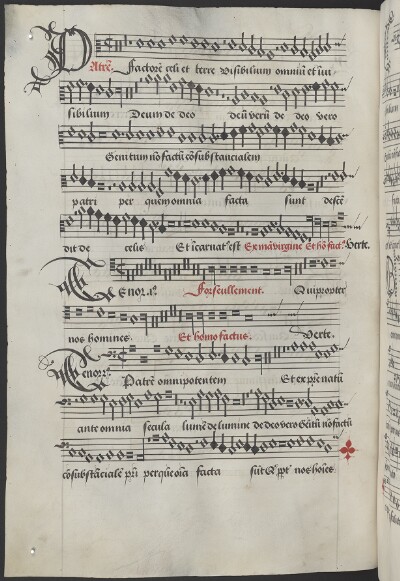 Patrē. Factorē celi et terre visibilium omniū et īui
sibilium Deum de deo deū verū de deo vero
Genitum nō factū cōsubstancialem
patri per quem omnia facta sunt descē
dit de celis Et īcarnat' est Ex maͥ virgine Et hō fact' Verte.
Tenor .1. Forseullement. Qui propter
nos homines. Et homo factus. Verte.
Tenor Patrē omnipotentem Et ex pr̄e natū
ante omnia secula lumē de lumine de deo vero Genitū nō factū
cōsubstācialē pr̄i per quē oīa facta sūt Q ppt' nos hoīes